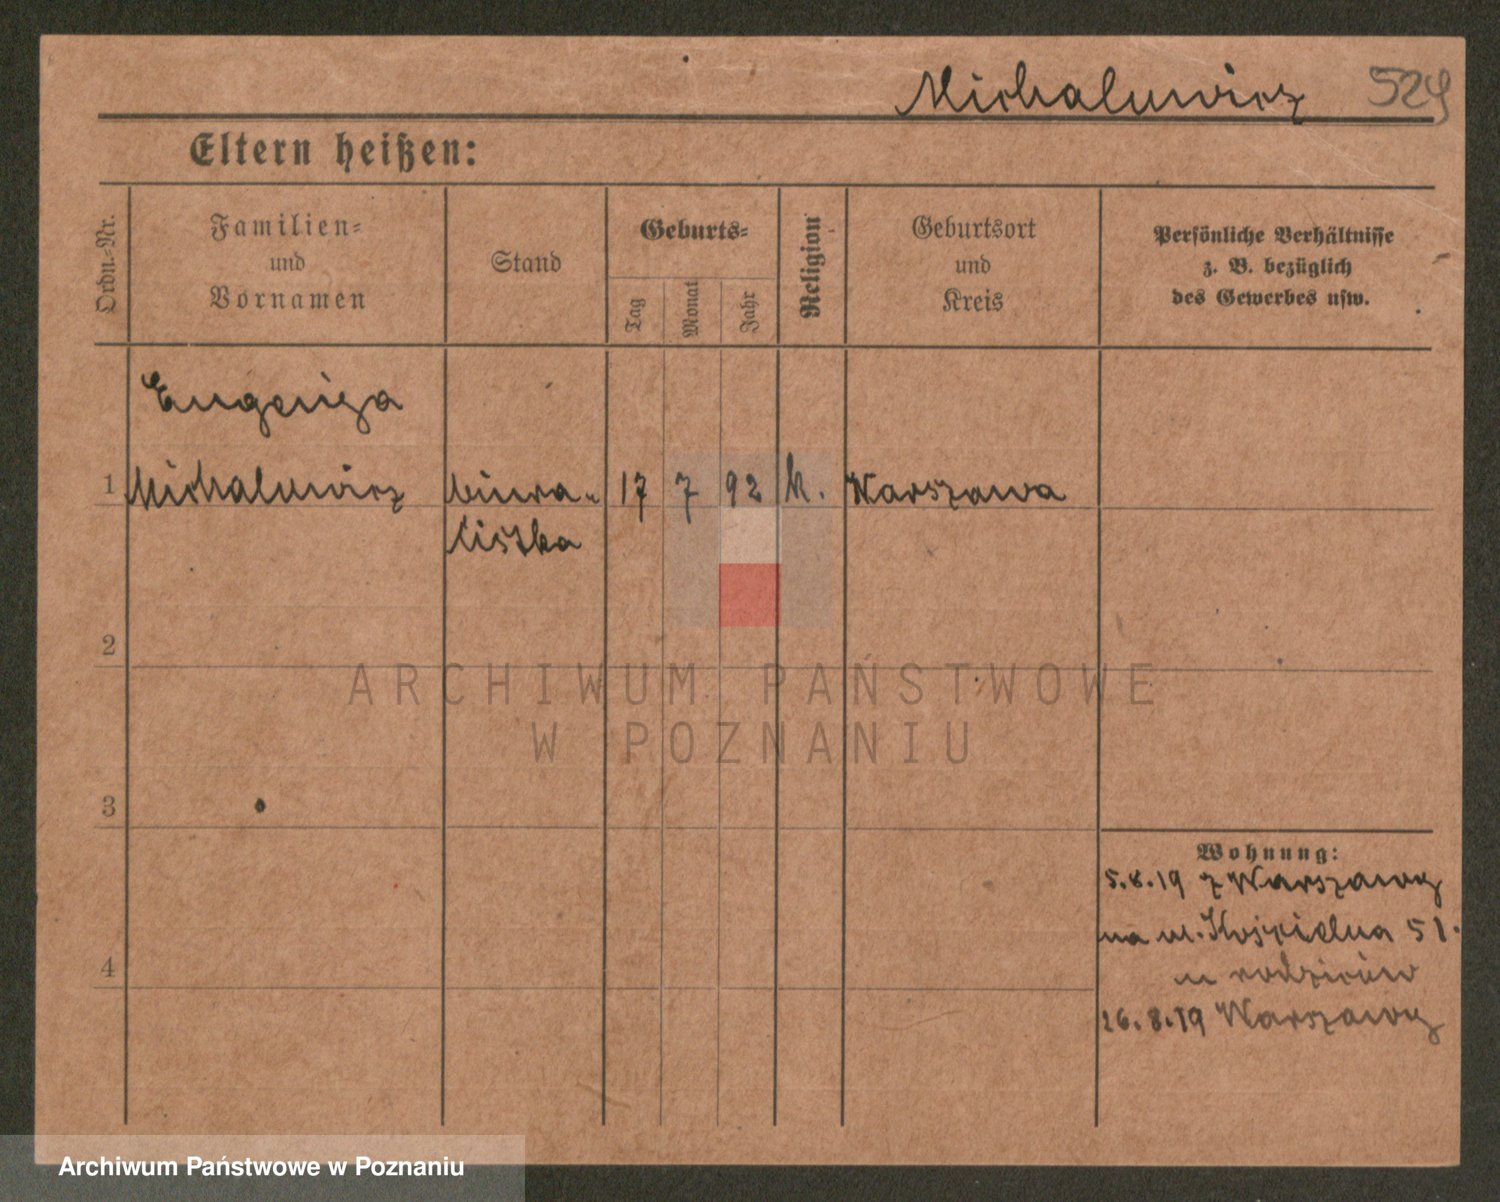 Michalewicz 529
Eltern heißen:
Ordn.-Nr.
Familien-
und
Vornamen
Stand
Geburts-
Tag
Monat
Jahr
Religion
Geburtsort
und
Kreis
Persönliche Verhältnisse
z. B. bezüglich
des Gewerbes usw.
Eugenija
1 Michalewicz biura- 17 7 92 k. Warszawa
listka
2
ARCHIWUM PAŃSTWOWE
W POZNANIU
3
Wohnung:
5.8.19 z Warszawy
na ul. Kościelna 51.
u rodziców
4
26.8.19 Warszawy
Archiwum Państwowe w Poznaniu